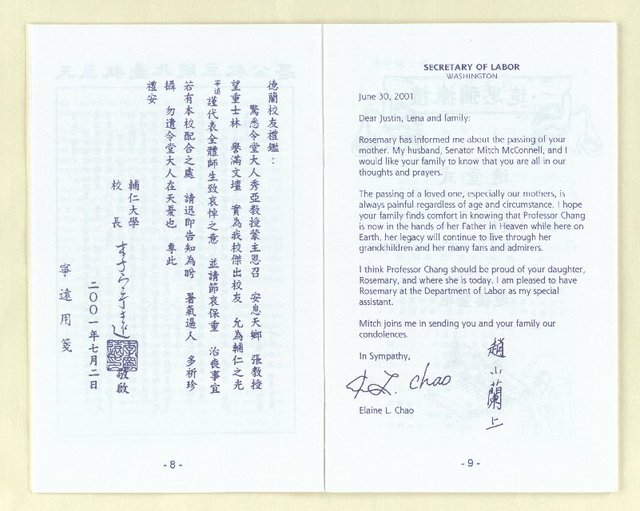 德蘭校友禮鑑：
驚悉令堂大人秀亞教授蒙主恩召　安息天鄉　張教授
望重士林　譽滿文壇　實為我校傑出校友　允為輔仁之光
寧遠謹代表全體師生致哀悼之意　並請節哀保重　治喪事宜
若有本校配合之處　請迅即告知為盼　暑氣逼人　多祈珍
攝　勿遺令堂大人在天憂也　專此
禮安
輔仁大學
校長
敬啟
二〇〇一年七月二日
寧遠用箋
- 8 -
SECRETARY OF LABOR
WASHINGTON
June 30, 2001
Dear Justin, Lena and family:
Rosemary has informed me about the passing of your
mother. My husband, Senator Mitch McConnell, and I
would like your family to know that you are all in our
thoughts and prayers.
The passing of a loved one, especially our mothers, is
always painful regardless of age and circumstance. I hope
your family finds comfort in knowing that Professor Chang
is now in the hands of her Father in Heaven while here on
Earth, her legacy will continue to live through her
grandchildren and her many fans and admirers.
I think Professor Chang should be proud of your daughter,
Rosemary, and where she is today. I am pleased to have
Rosemary at the Department of Labor as my special
assistant.
Mitch joins me in sending you and your family our
condolences.
In Sympathy,
Chao
趙小蘭上
Elaine L. Chao
- 9 -